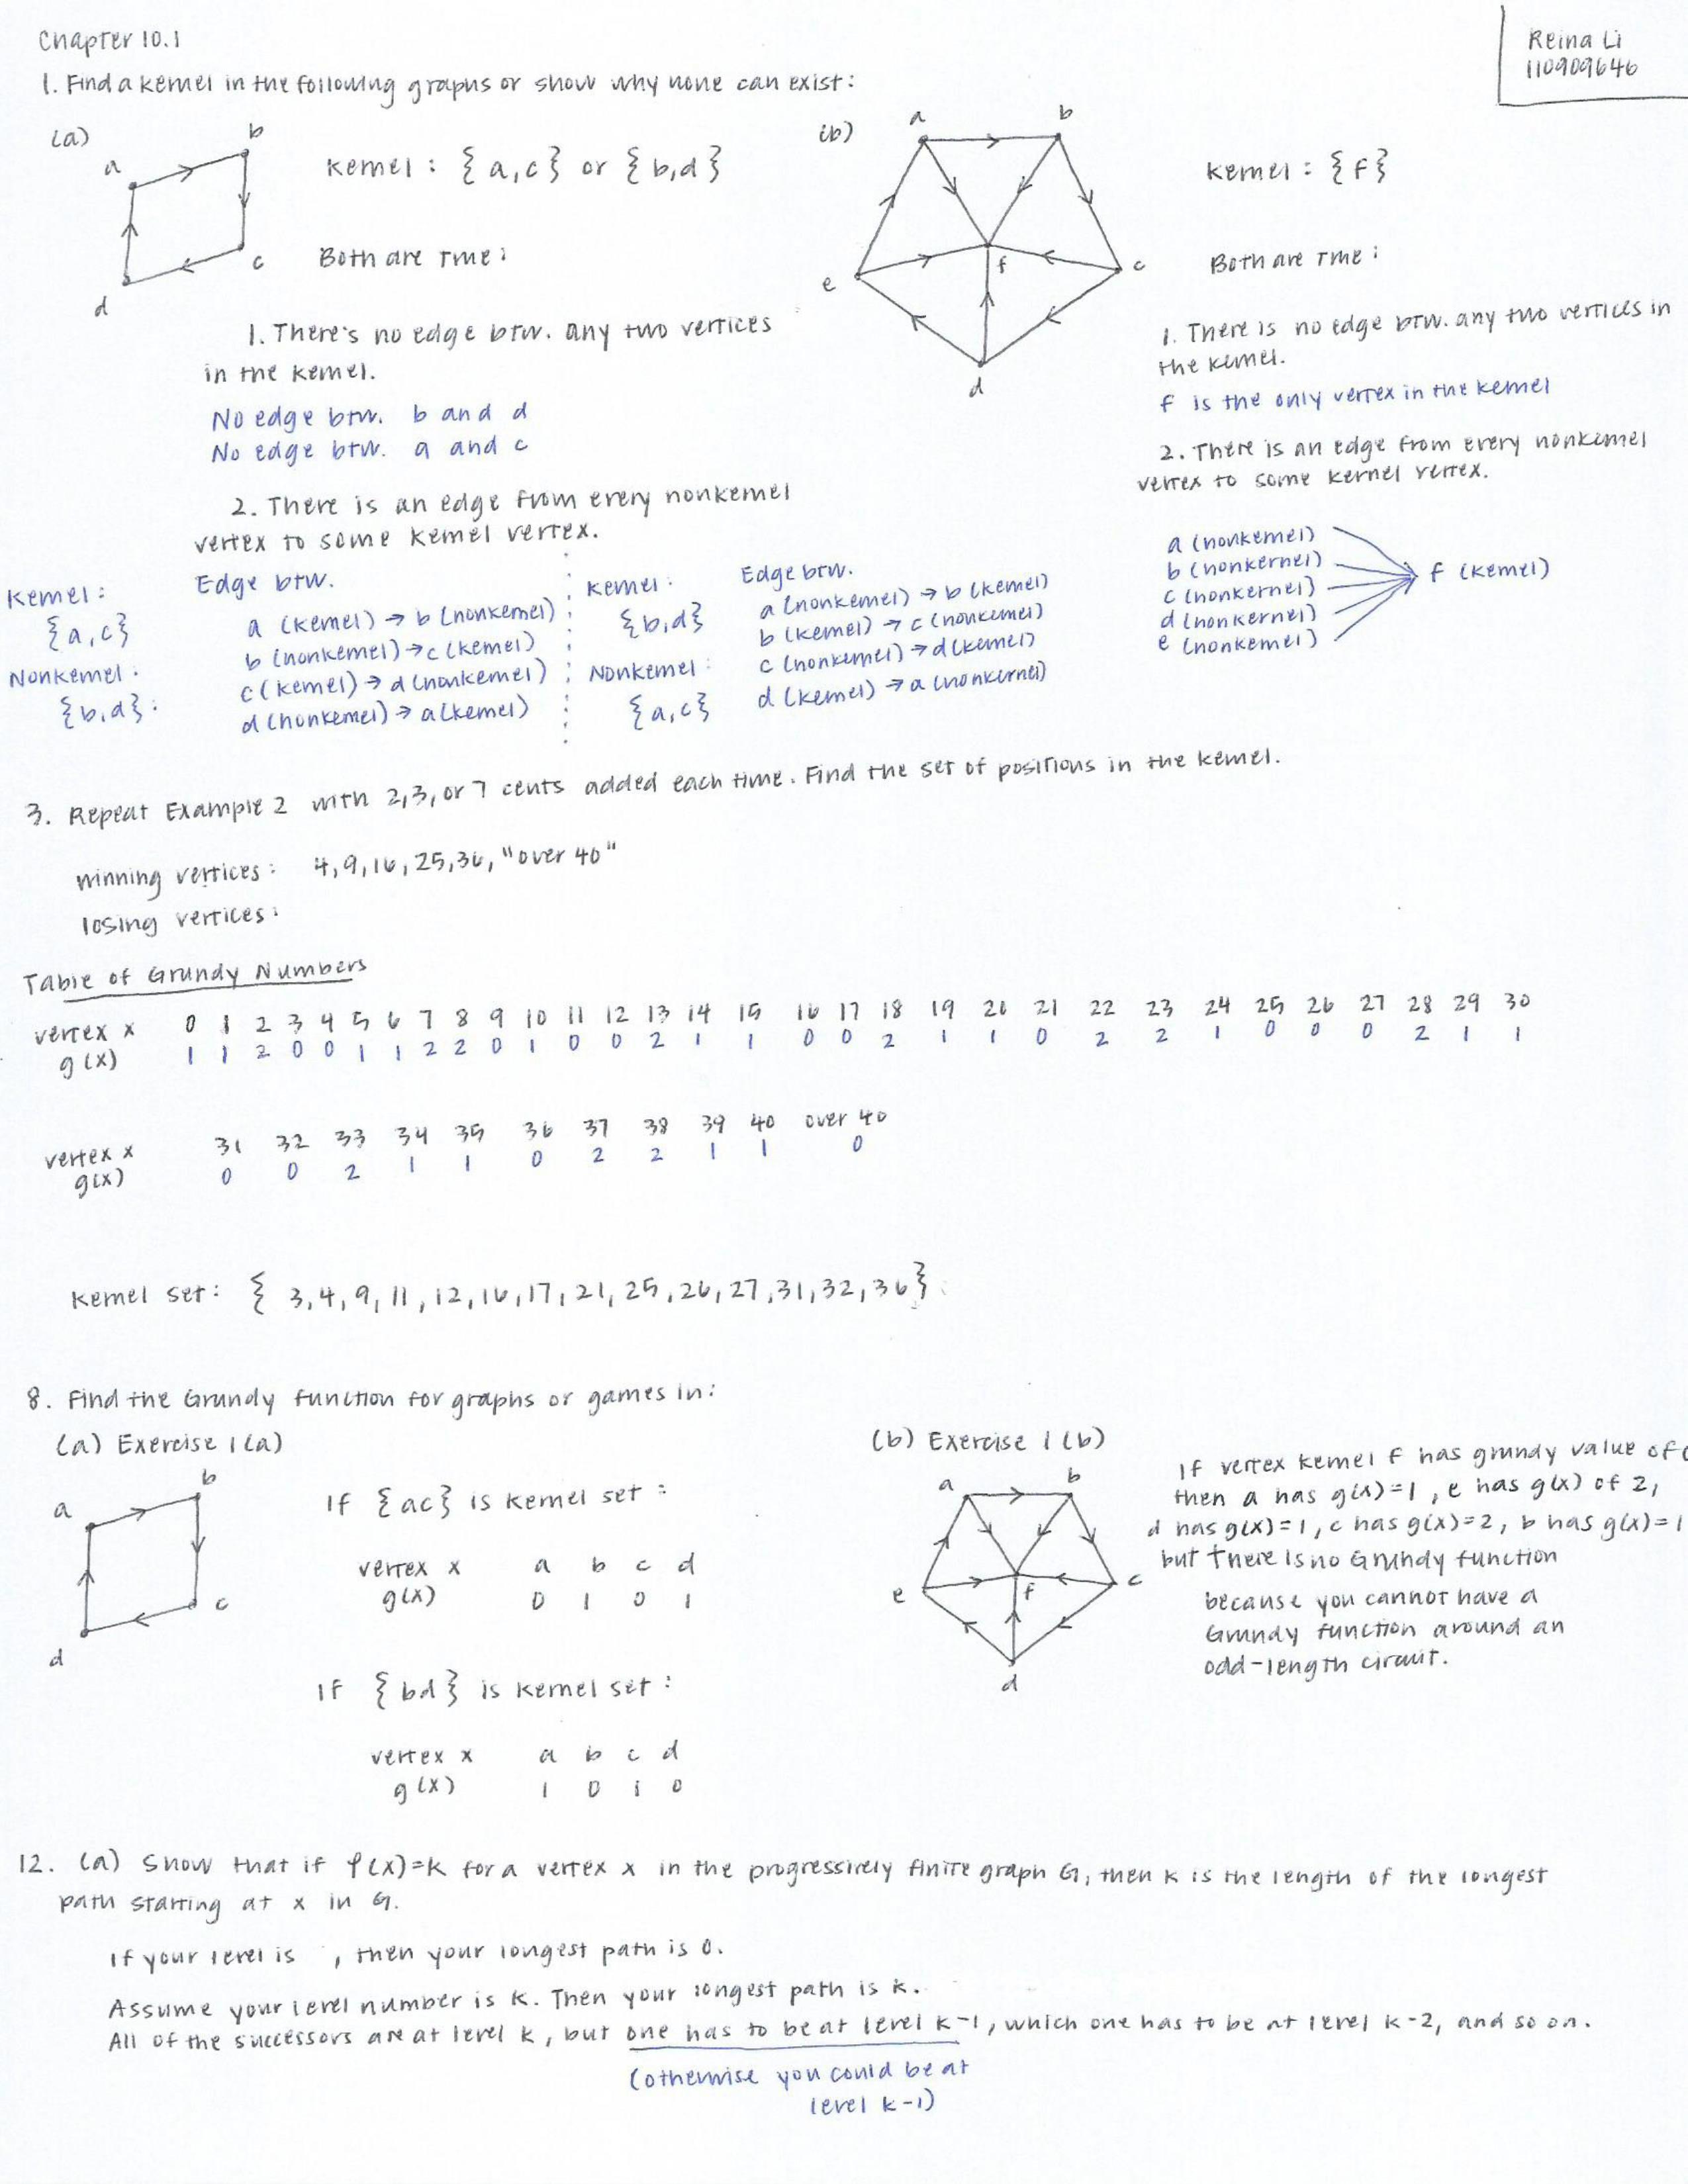 Chapter 10.1
Reina Li
110909646
1. Find a kernel in the following graphs or show why none can exist:
(a)
a
b
c
d
Kernel : { a,c } or { b,d }
Both are true:
1. There's no edge btw. any two vertices
in the kernel.
No edge btw. b and d
No edge btw. a and c
2. There is an edge from every nonkernel
vertex to some kernel vertex.
Kernel:
{a,c}
Nonkernel:
{b,d}:
Edge btw.
a (kernel) → b (nonkernel)
b (nonkernel) → c (kernel)
c (kernel) → d (nonkernel)
d (nonkernel) → a (kernel)
Kernel:
{b,d}
Nonkernel:
{a,c}
Edge btw.
a (nonkernel) → b (kernel)
b (kernel) → c (nonkernel)
c (nonkernel) → d (kernel)
d (kernel) → a (nonkernel)
(b)
a
b
c
d
e
f
Kernel : { f }
Both are true:
1. There is no edge btw. any two vertices in
the kernel.
f is the only vertex in the kernel
2. There is an edge from every nonkernel
vertex to some kernel vertex.
a (nonkernel)
b (nonkernel)
c (nonkernel)
d (nonkernel)
e (nonkernel)
f (kernel)
3. Repeat Example 2 with 2,3, or 7 cents added each time. Find the set of positions in the kernel.
winning vertices: 4,9,16,25,36, "over 40"
losing vertices:
Table of Grundy Numbers
vertex x 0 1 2 3 4 5 6 7 8 9 10 11 12 13 14 15 16 17 18 19 20 21 22 23 24 25 26 27 28 29 30
g(x) 1 1 2 0 0 1 1 2 2 0 1 0 0 2 1 1 0 0 2 1 1 0 2 2 1 0 0 0 2 1 1
vertex x 31 32 33 34 35 36 37 38 39 40 over 40
g(x) 0 0 2 1 1 0 2 2 1 1 0
Kernel set: { 3,4,9,11,12,16,17,21,25,26,27,31,32,36}
8. Find the Grundy function for graphs or games in:
(a) Exercise 1(a)
a
b
c
d
If {ac} is kernel set :
vertex x a b c d
g(x) 0 1 0 1
If {bd} is kernel set :
vertex x a b c d
g(x) 1 0 1 0
(b) Exercise 1(b)
a
b
c
d
e
f
If vertex kernel f has grundy value of 0
then a has g(x)=1, e has g(x) of 2,
d has g(x)=1, c has g(x)=2, b has g(x)=1
but there is no Grundy function
because you cannot have a
Grundy function around an
odd-length circuit.
12. (a) Show that if φ(x)=k for a vertex x in the progressively finite graph G, then k is the length of the longest
path starting at x in G.
If your level is , then your longest path is 0.
Assume your level number is k. Then your longest path is k.
All of the successors are at level k, but one has to be at level k-1, which one has to be at level k-2, and so on.
(otherwise you could be at
level k-1)